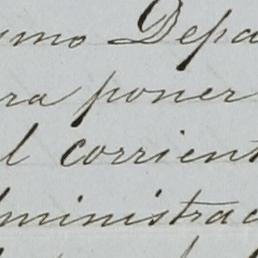 umo Depa
ra poner
l corrient
dministrac